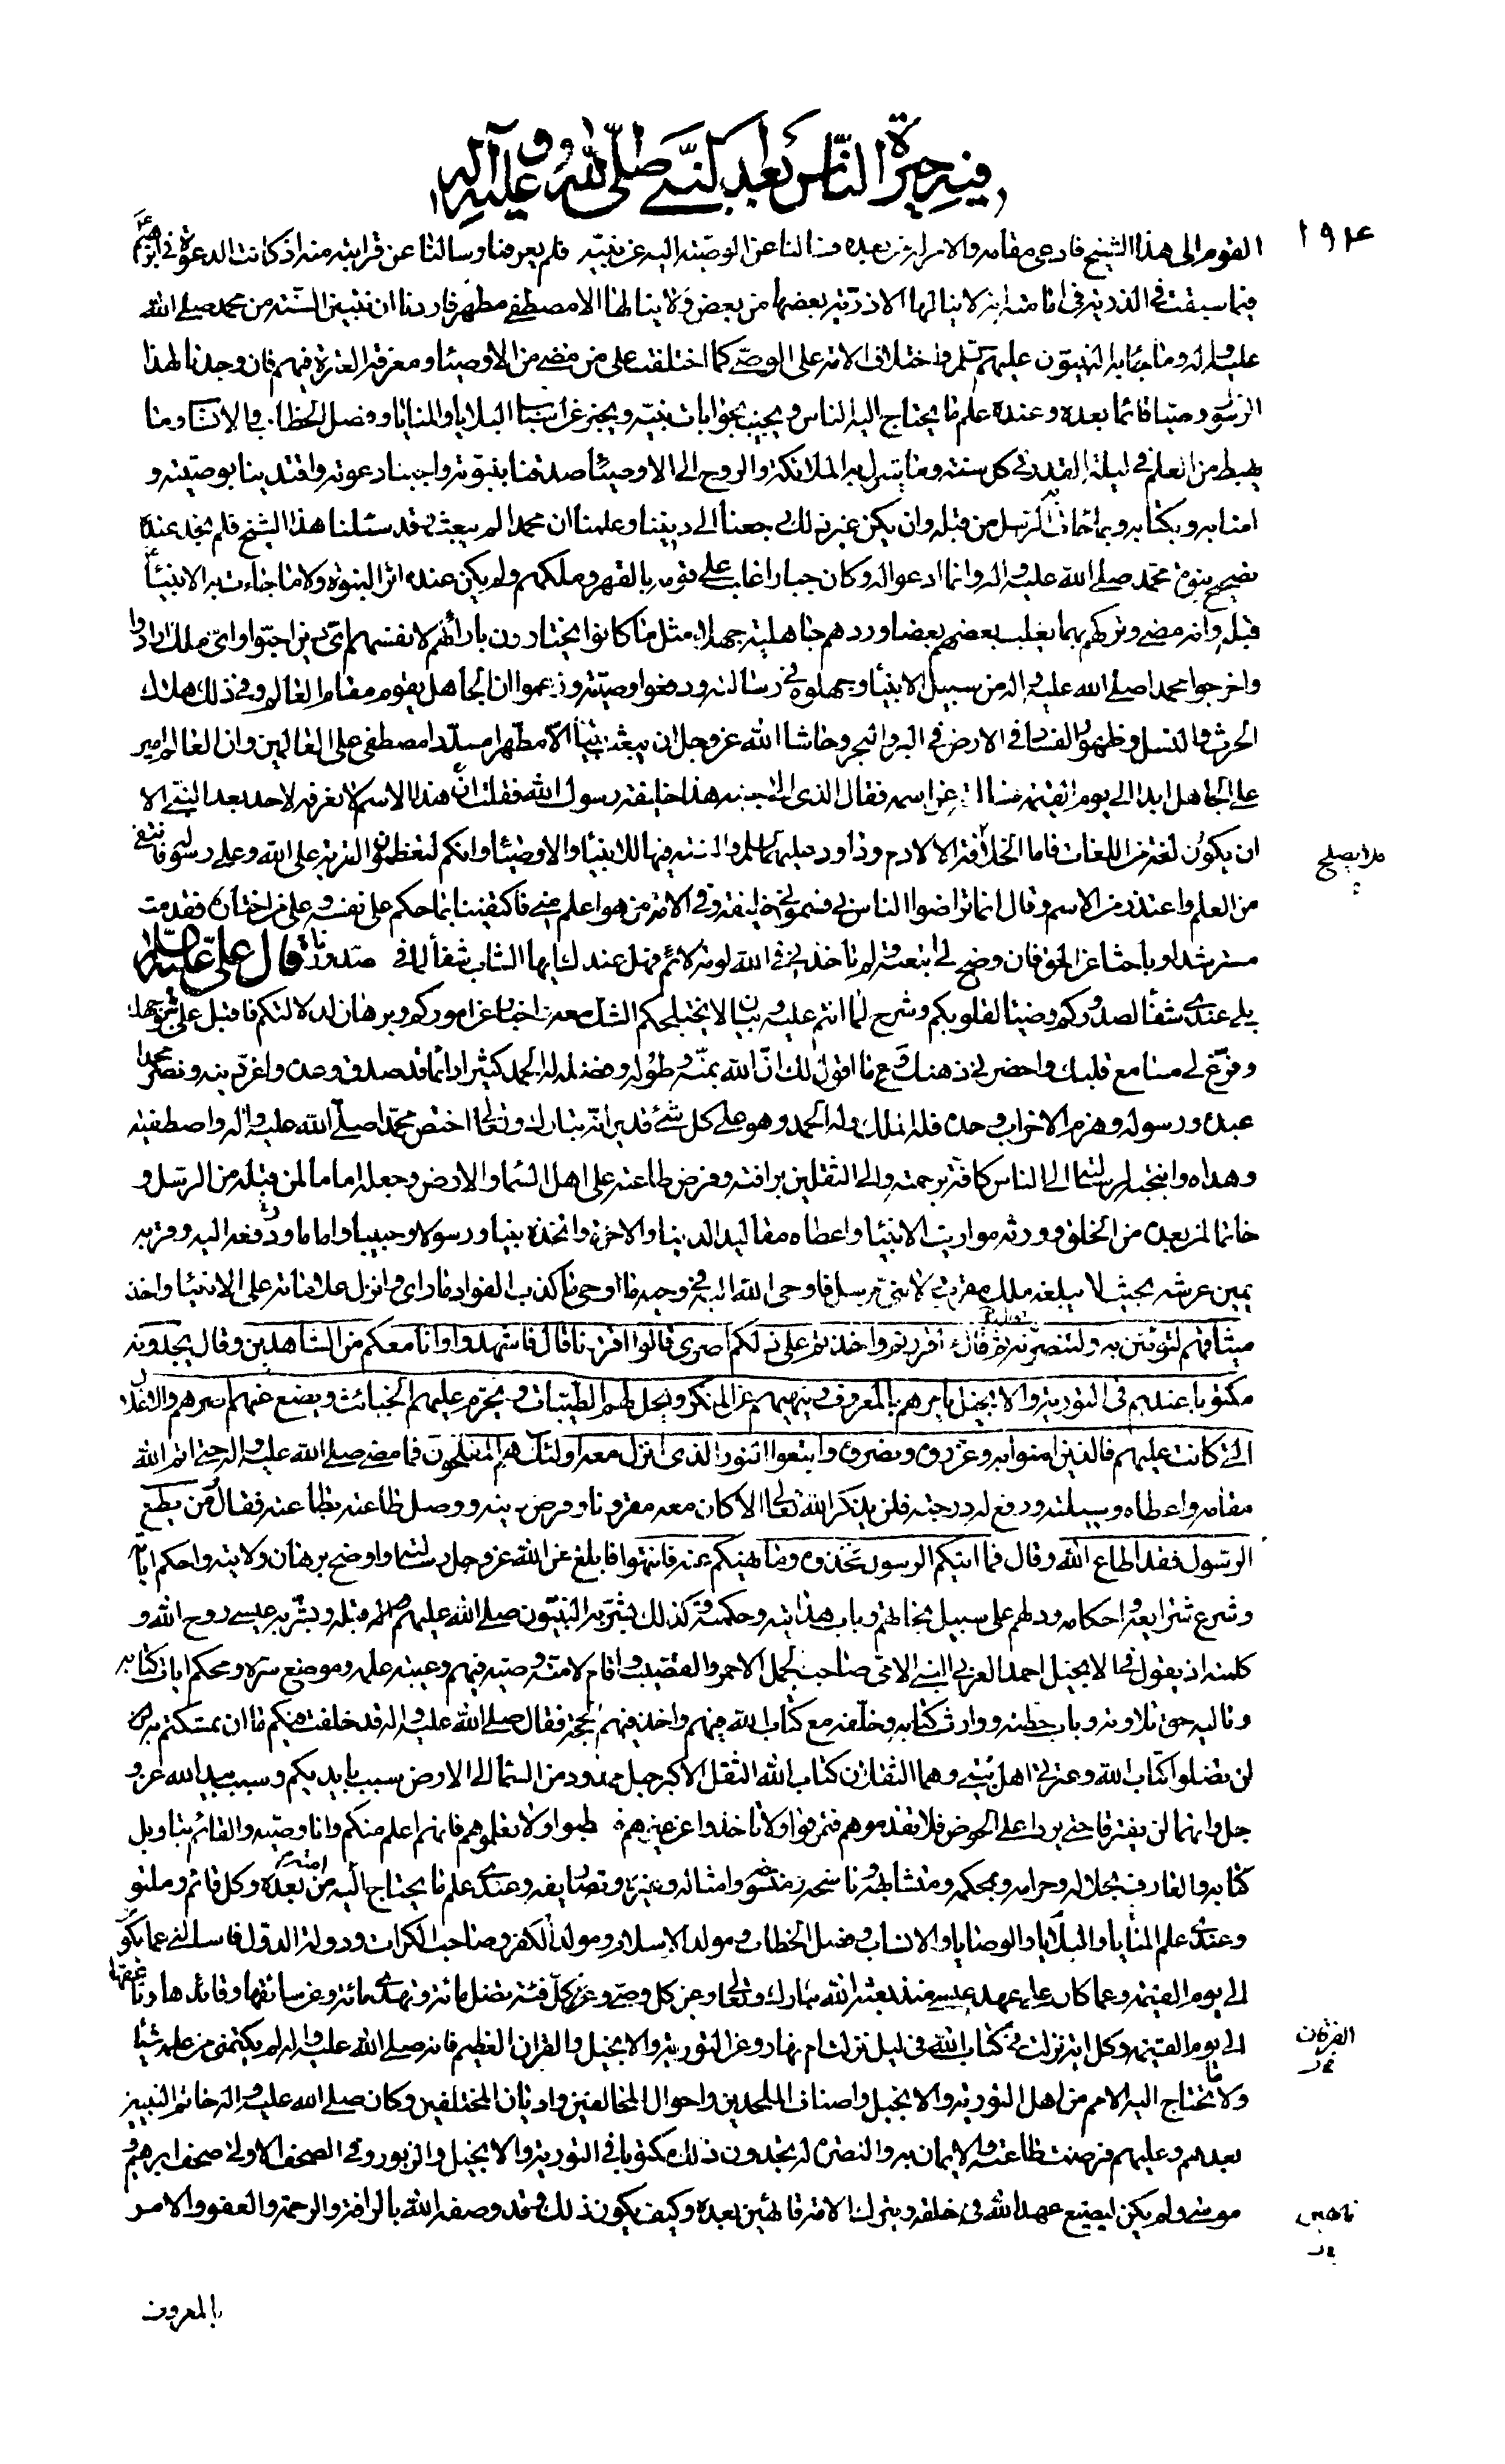 فيه حيرة الناس بعد النبي صلى الله عليه وآله
١٩٤
القوم الى هذا الشيخ فادعى مقامه والامر له من بعده فسالنا عن الوصية اليه عن نبيه فلم يعرفنا وسالنا عن قرابته منه اذ كانت الدعوة في ابرهيم
فيما سبقت في الذرية في امامته انه لا ينالها الا ذرية بعضها من بعض ولا ينالها الا مصطفى مطهر فاردنا ان نتبين السنة من محمد صلى الله
عليه واله وما جاء به النبيون عليهم السلم واختلاف الامة على الوصي كما اختلفت على من مضى من الاوصياء ومعرفة العترة فيهم فان وجدنا لهذا
الرسول وصيا قائما بعده وعنده علم ما يحتاج اليه الناس ويجيب بجوابات بينة ويخبر عن اسباب البلايا والمنايا وفصل الخطاب والانساب وما
يهبط من العلم في ليلة القدر في كل سنة وما ينزل به الملائكة والروح الى الاوصياء صدقنا بنبوته واجبنا دعوته واقتدينا بوصيته و
امنا به وبكتابه وبما جاءت به الرسل من قبله وان يكن غير ذلك رجعنا الى ديننا وعلمنا ان محمدا لم يبعث وقد سئلنا هذا الشيخ فلم نجد عنده
تصحيح نبوة محمد صلى الله عليه واله وانما ادعوا له وكان جبارا غلب على قومه بالقهر وملكهم ولم يكن عنده اثر النبوة ولا ما جاءت به الانبياء
قبله وانه مضى وتركهم بهما يغلب بعضهم بعضا وردهم جاهلية جهلاء مثل ما كانوا يختارون بارائهم لانفسهم اي دين احبوا واي ملك ارادوا
واخرجوا محمدا صلى الله عليه واله من سبيل الانبياء وجهلوه في رسالته ودفعوا وصيته وزعموا ان الجاهل يقوم مقام العالم وفي ذلك هلاك
الحرث والنسل وظهور الفساد في الارض في البر والبحر وحاشا الله عز وجل ان يبعث نبيا الا مطهرا مسددا مصطفى على العالمين وان العالم امير
على الجاهل ابدا الى يوم القيمة فسالته عن اسمه فقال الذي الى جنبه هذا خليفة رسول الله فقلت ان هذا الاسم لا نعرفه لاحد بعد النبي الا
ان يكون لغة من اللغات فاما الخلافة الا لادم وداود عليهما السلم والسنة فيها للانبياء والاوصياء وانكم لتعظمون الفرية على الله وعلى رسوله فانتفى
فلا يصلح
من العلم واعتذر من الاسم وقال انما تراضوا الناس بي فسموني خليفة وفي الامة من هو اعلم مني فاكتفينا بما حكم على نفسه وعلى من اختاره فقدمت
مسترشدا وباحثا عن الحق فان وضح لي اتبعته ولم تاخذني في الله لومة لائم فهل عندك ايها الشاب شفاء لما في صدورنا قال علي عليه السلام
بلى عندي شفاء لصدوركم وضياء لقلوبكم وشرح لما انتم عليه وبيان لا يختلجكم الشك معه واخبار عن اموركم وبرهان لدلالتكم فاقبل علي بوجهك
وفرغ لي مسامع قلبك واحضرني ذهنك وع ما اقول لك ان الله بمنه وطوله وفضله له الحمد كثيرا دائما قد صدق وعده واعز دينه ونصر محمدا
عبده ورسوله وهزم الاحزاب وحده فله الملك وله الحمد وهو على كل شئ قدير انه تبارك وتعالى اختص محمدا صلى الله عليه واله واصطفيه
وهداه وانتجبه لرسالته الى الناس كافة برحمته والى الثقلين برافته وفرض طاعته على اهل السماء والارض وجعله اماما لمن قبله من الرسل و
خاتما لمن بعده من الخلق وورثه مواريث الانبياء واعطاه مقاليد الدنيا والاخرة واتخذه نبيا ورسولا وحبيبا واماما ورفعه اليه وقربه
يمين عرشه بحيث لا يبلغه ملك مقرب ولا نبي مرسل فاوحى الله اليه في وحيه ما اوحى ما كذب الفؤاد ما راى وانزل علاماته على الانبياء واخذ
ميثاقهم لتؤمنن به ولتنصرنه ثم قال ءاقررتم واخذتم على ذلكم اصري قالوا اقررنا قال فاشهدوا وانا معكم من الشاهدين وقال يجدونه
مكتوبا عندهم في التورية والانجيل يامرهم بالمعروف وينهيهم عن المنكر ويحل لهم الطيبات ويحرم عليهم الخبائث ويضع عنهم اصرهم والاغلال
التي كانت عليهم فالذين امنوا به وعزروه ونصروه واتبعوا النور الذي انزل معه اولئك هم المفلحون فما مضى صلى الله عليه واله حتى اتم الله
مقامه واعطاه وسيلته ورفع له درجته فلن يذكر الله تعالى الا كان معه مقرونا وفرض دينه ووصل طاعته بطاعته فقال من يطع
الرسول فقد اطاع الله وقال فما اتيكم الرسول فخذوه وما نهيكم عنه فانتهوا فابلغ عن الله عز وجل رسالته واوضح برهان ولايته واحكم اياته
وشرع شرايعه واحكامه ودلهم على سبيل نجاتهم وباب هدايته وحكمته وكذلك بشر به النبيون صلى الله عليهم قبله وبشر به عيسى روح الله و
كلمته اذ يقول في الانجيل احمد العربي النبي الامي صاحب الجمل الاحمر والقضيب واقام لامته وصيه فيهم وعيبة علمه وموضع سره ومحكم ايات كتابه
وتاليه حق تلاوته وباب حطته ووارث كتابه وخلفه مع كتاب الله فيهم واخذ فيهم الحجة فقال صلى الله عليه واله قد خلفت فيكم ما ان تمسكتم به
لن تضلوا كتاب الله وعترتي اهل بيتي وهما الثقلان كتاب الله الثقل الاكبر حبل ممدود من السماء الى الارض سبب بايديكم وسبب بيد الله عز و
جل وانهما لن يفترقا حتى يردا على الحوض فلا تقدموهم فتمرقوا ولا تاخذوا عن غيرهم فتعطبوا ولا تعلموهم فانهم اعلم منكم وانا وصيه والقائم بتاويل
كتابه والعارف بحلاله وحرامه وبمحكمه ومتشابهه وناسخه ومنسوخه وامثاله وعبره وتصاريفه وعندي علم ما يحتاج اليه امته من بعده وكل قائم وملتو
وعندي علم المنايا والبلايا والوصايا والانساب وفصل الخطاب ومولد الاسلام ومولد الكفر وصاحب الكرات ودولة الدول فاسالني عما يكون
الى يوم القيمة وعما كان على عهد عيسى منذ بعثه الله تبارك وتعالى وعن كل وصي وعن كل فئة تضل مائة وتهدي مائة وعن سائقها وقائدها وناعقها
الى يوم القيمة وكل اية نزلت في كتاب الله في ليل نزلت ام نهار وعن التورية والانجيل والقران العظيم فانه صلى الله عليه واله لم يكتمني من علمه شيئا
الفرقان
ولا ما تحتاج اليه الامم من اهل التورية والانجيل واصناف الملحدين واحوال المخالفين واديان المختلفين وكان صلى الله عليه واله خاتم النبيين
بعدهم وعليهم فرضت طاعته والايمان به والنصرة له تجدون ذلك مكتوبا في التورية والانجيل والزبور وفي الصحف الاولى صحف ابرهيم و
موسى ولم يكن ليضيع عهد الله في خلقه ويترك الامة تائهين بعده وكيف يكون ذلك وقد وصفه الله بالرافة والرحمة والعفو والامر
بالمعروف